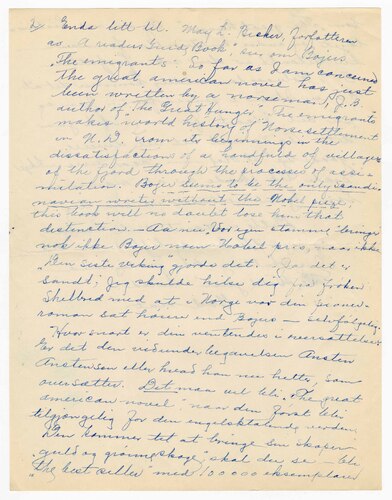 Enda litt til. May L. Becker, forfatteren
av "A readers Guide Book" sier om Bojers
"The emigrants": So far as I am concerned
the great american novel has just
been written by a norseman, J. B.
author of The Great Hunger. "The emigrants"
makes "world history" of Norse settlement
in N.D. from its beginnings in the
dissatisfaction of a handful of villagers
of the fjord through the processes of assi-
milation. Bojer seems to be the only scandi-
navian writer without the Nobel prize;
this book will no doubt lose him that
distinction. – Aa nei,
nok ikke Bojer noen Nobel pris, naar ikke
"Den siste viking" gjorde det. – Ja det er
sandt; Jeg skulde hilse dig fra frøken
Shelbred med at i Norge var din pioner-
roman sat høiere end Bojers – selvfølgelig.
Hvor snart er din ventendes i oversættelse?
Er det den vidunderbegavelsen Ansten
Anstensen eller hvad han nu heter, som
oversætter. Det maa vel bli "The great
american novel" naar den først blir
tilgjængelig for den engelsktalende verden.
Den kommer til at bringe sin skaper
"guld og grønne skoge" skal du se – bli
"the best seller" med 100000 eksemplarer